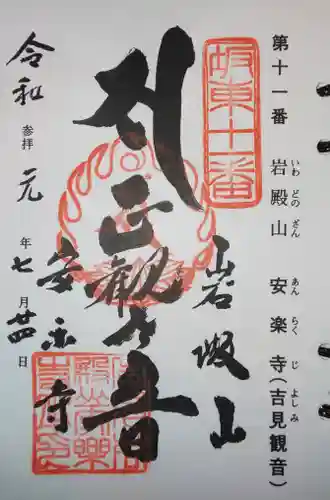 第十一番 岩殿山 安楽寺(吉見観音)
いわ どの さん あん らく じ よし み
坂東十一番
岩殿山
正観世音
安楽寺
令和元年七月廿四日
参拝